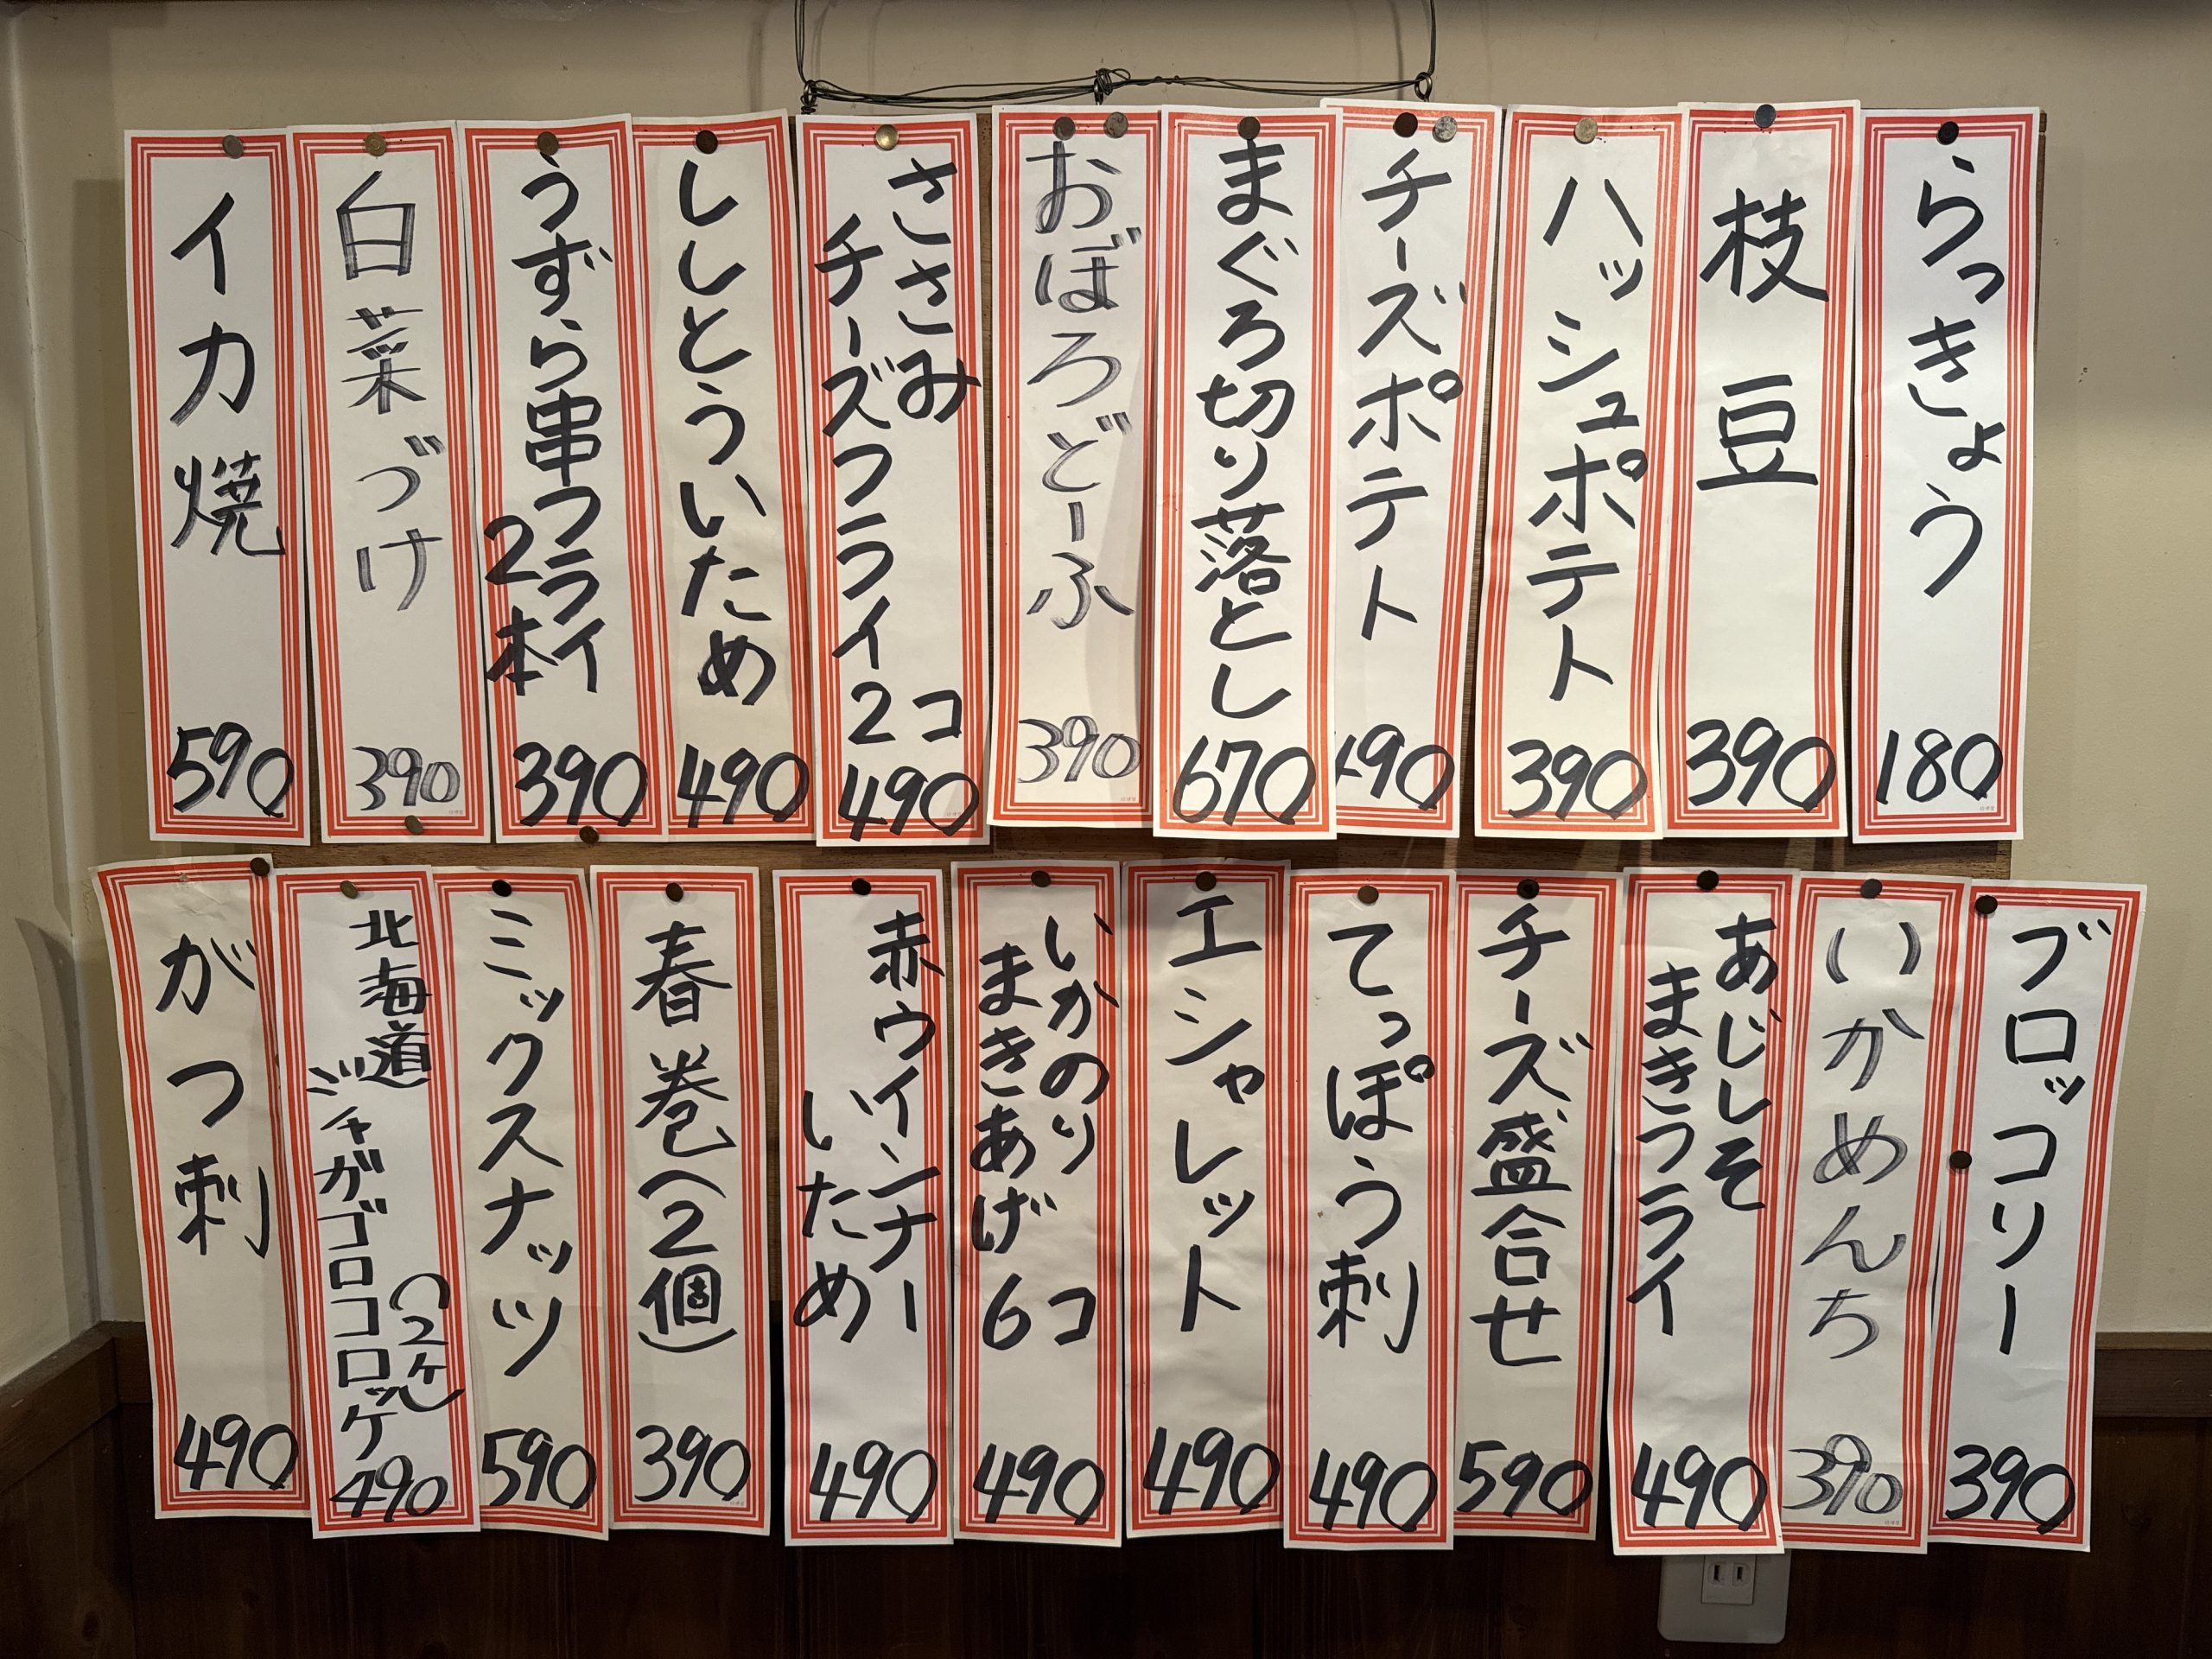 らっきょう
180
枝豆
390
ハッシュポテト
390
チーズポテト
490
まぐろ切り落とし
670
おぼろどーふ
390
ささみ
チーズフライ2コ
490
ししとういため
490
うずら串フライ
2本
390
白菜づけ
390
イカ焼
590
ブロッコリー
390
いかめんち
390
あじしそ
まきフライ
490
チーズ盛合せ
590
てっぽう刺
490
エシャレット
490
いかのり
まきあげ6コ
490
赤ウインナー
いため
490
春巻(2個)
390
ミックスナッツ
590
北海道
ジャガゴロコロッケ
(2ヶ)
490
がつ刺
490